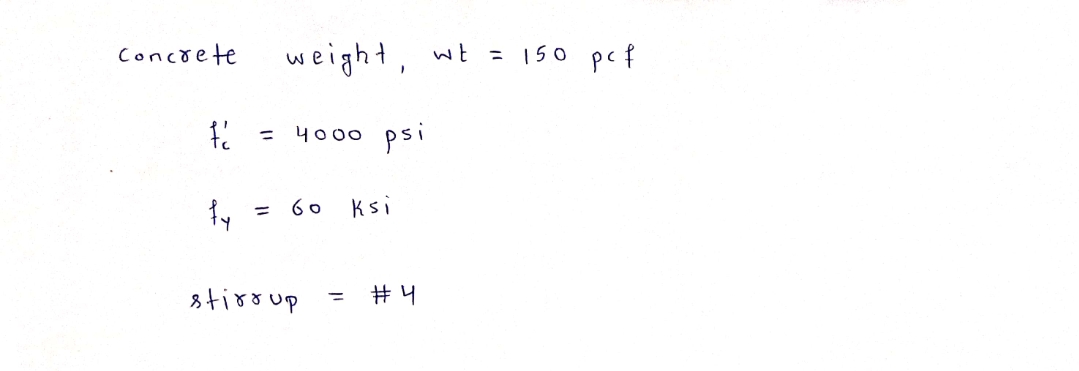 Concrete weight, wt = 150 pcf
f'c = 4000 psi
fy = 60 ksi
stirrup = #4